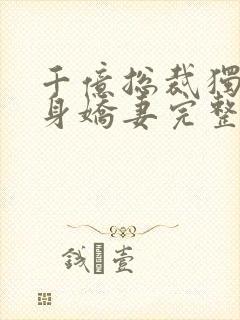 千億總裁獨
身嬌妻完整
錢 壹